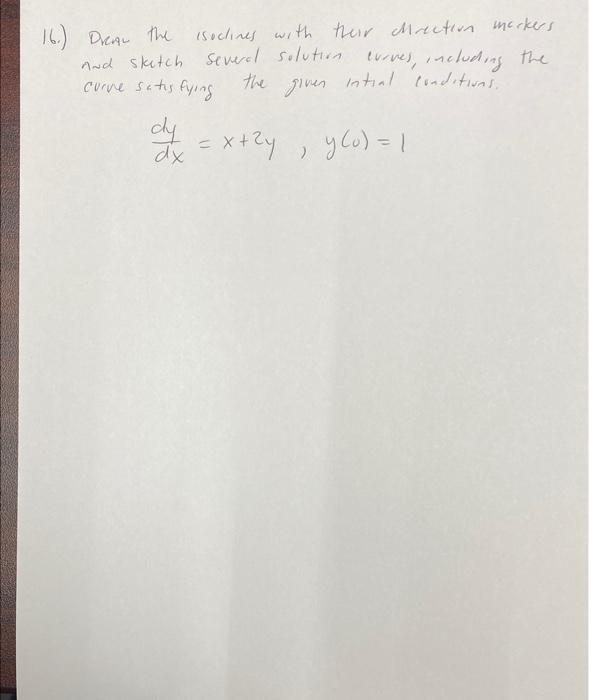 16.) Draw the isoclines with their direction markers
and sketch several solution curves, including the
curve satisfying the given intial conditions.
dy/dx = x+2y , y(0) = 1